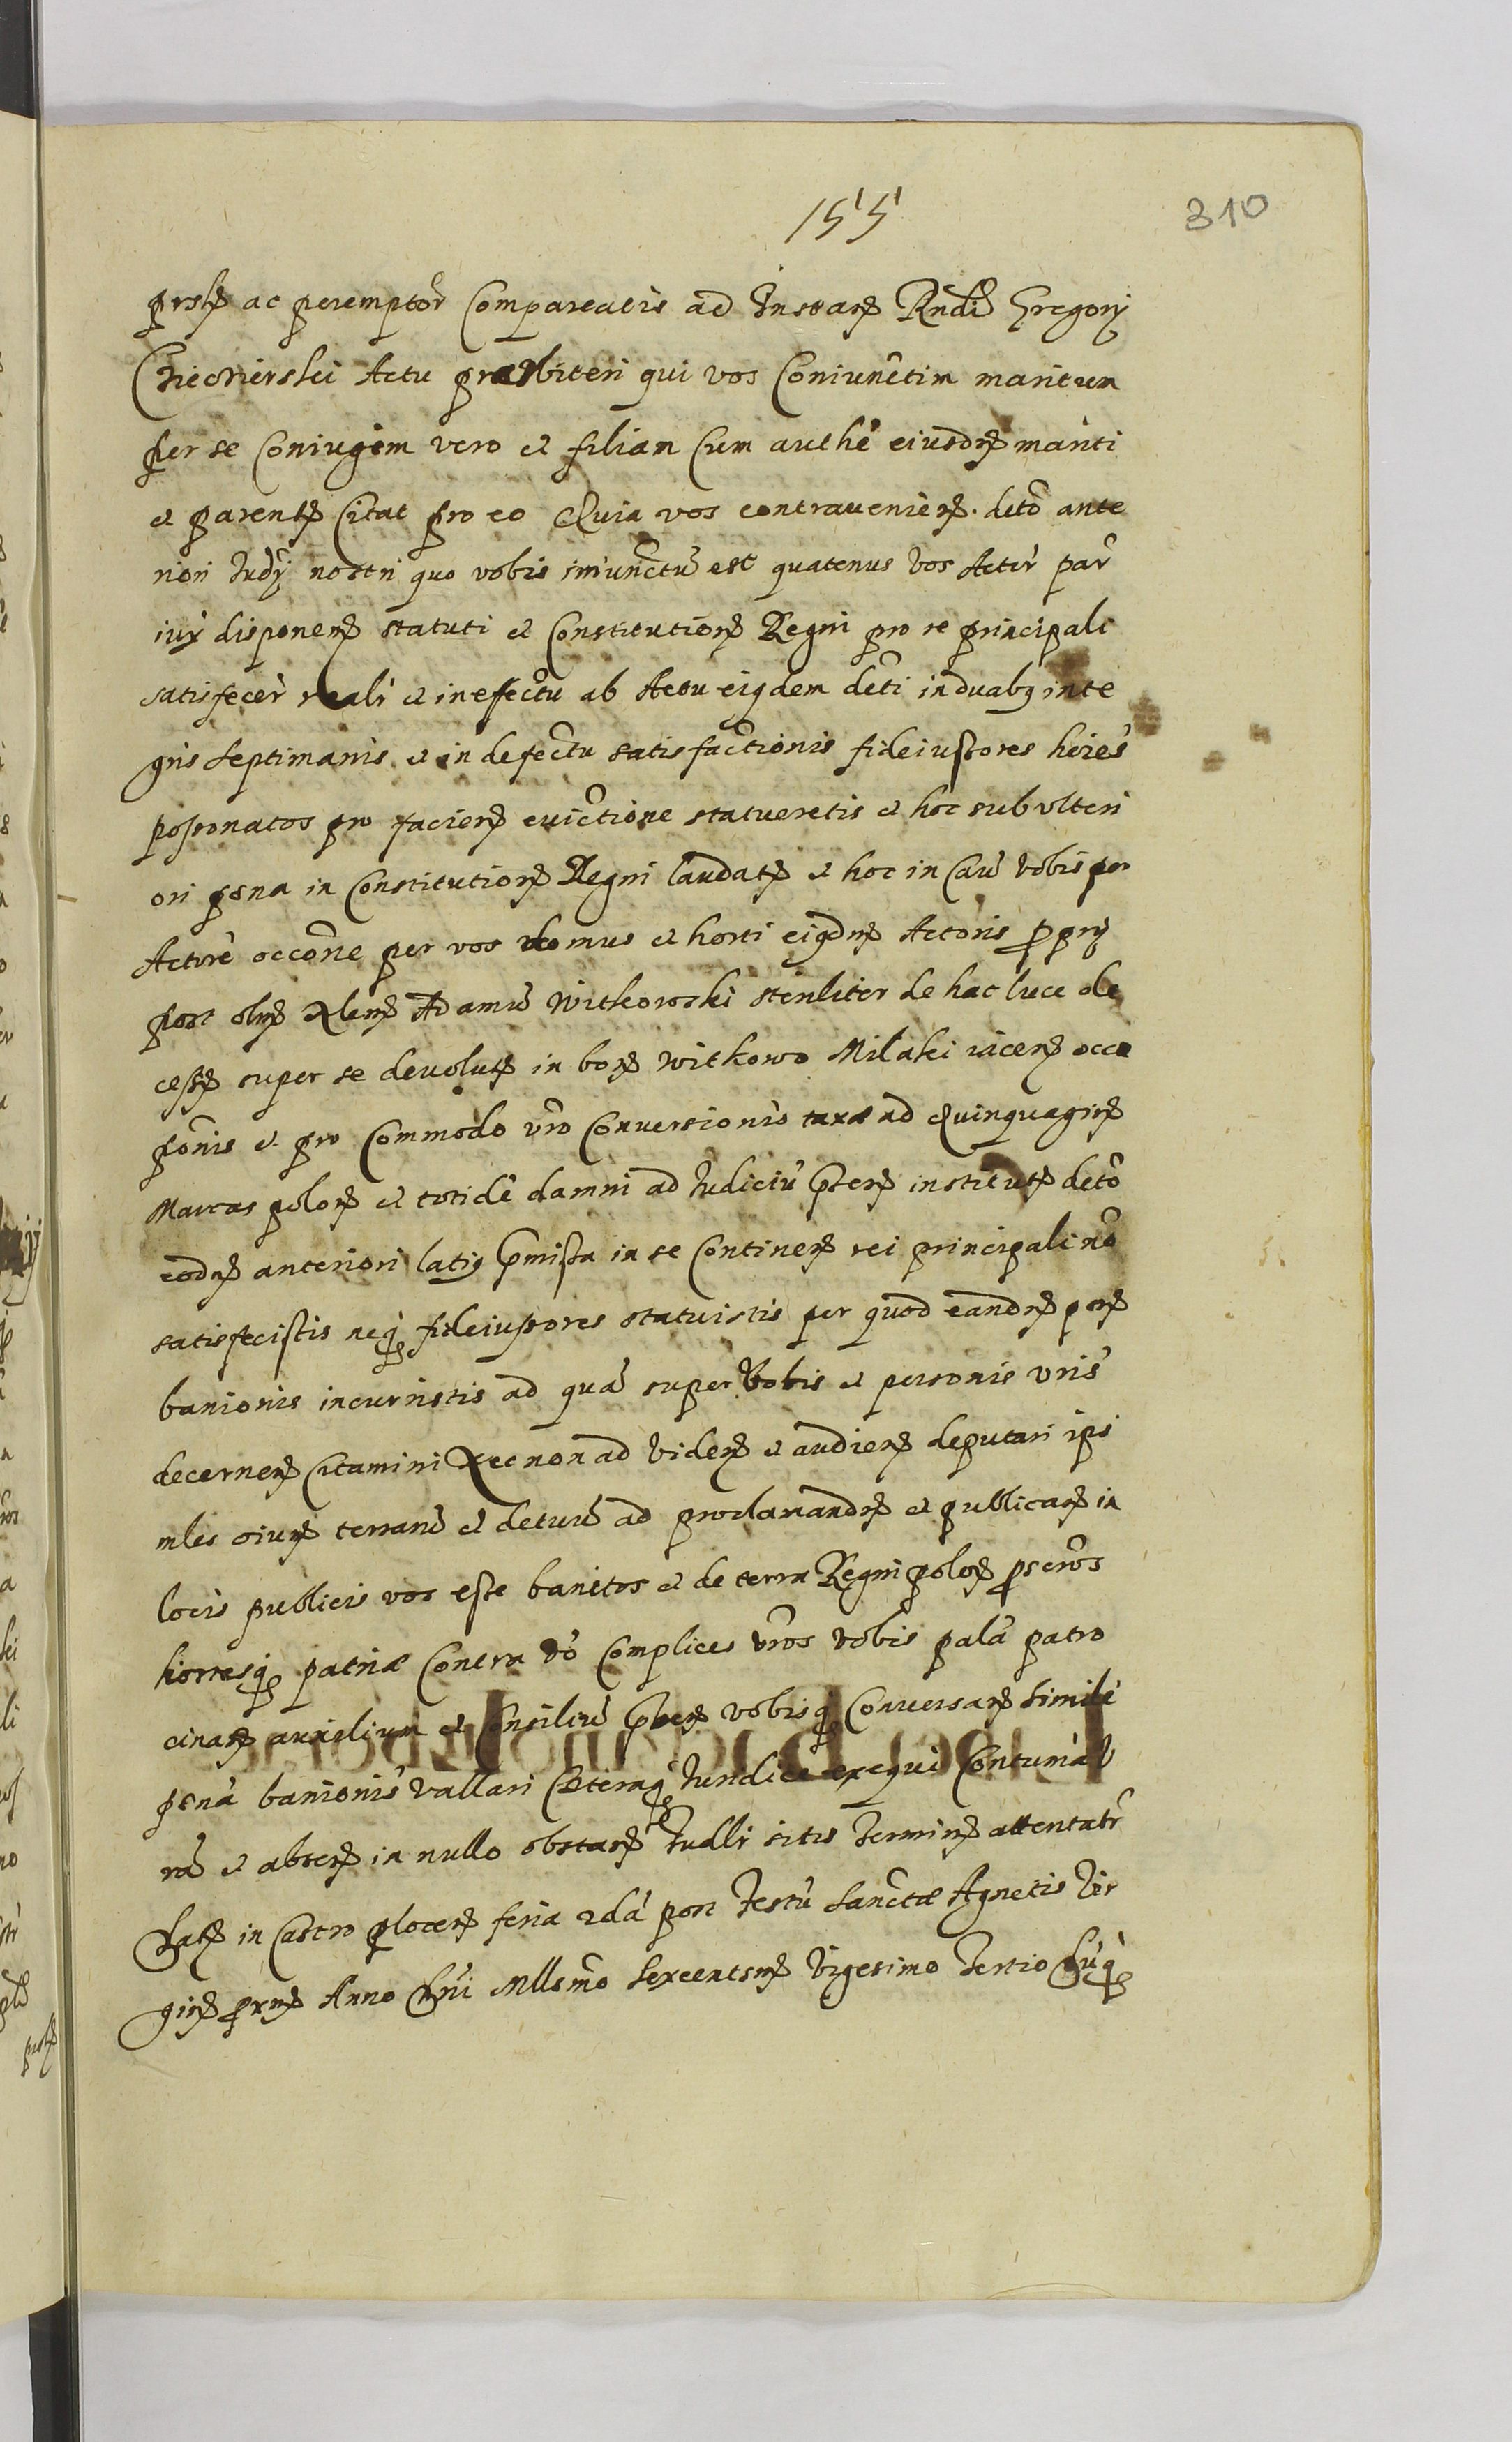 155
310
prsltr ac peremptor Compareatis ad Instarz Rndi Gregorij
Ciecierski Actu præsbiteri qui vos Coniunctim maritum
per se Coniugem vero et filiam Cum authe eiusdrz mariti
et parentz Citat pro eo Quia vos contravenierz deto ante
riori Iudy nostri quo vobis iniunctu est quatenus vos Actri par
iux disponerz statuti et Constitutiorz Regni pro re principali
satisfecer reali et in effectu ab Actu eiqdem deti in duabq inte
gris septimanis et in defectu satisfactionis fideiussores hoies
possonatos pro facierz evictione statueretis et hoc sub ulteri
ori pena in Constitutiorz Regni laudatz et hoc in Cau vobis per
Actore occone per vos domus et horti eiqdrz Actoris proprij
post olrz Adamu Witkowski steriliter de hac luce de
cessz super se devolutz in borz Witkowo Milaki iacerz occu
ponis et pro Commodo vro Conversionis taxæ ad Quinquagirz
Marcas polorz et totide damni ad Iudiciu institutz deto
eodrz anteriori latiq pmissa in se Continerz rei principali no
satisfecistis neq fideiussores statuistis per quod eandrz perz
banionis incurristis ad qua super vobis et personis vris
decernerz Citamini Necnon ad viderz et audierz deputari ipi
mles oiurz terraru et ad proclamandrz et publicarz in
locis publicis vos esse banitos et de terra Regni polorz pscros
hortesq patriæ Contra vo Complices vros vobis pala patro
cinarz auxilium et Consiliu vobisq Conversarz simile
pena banionis vallari Cæteraq Iuridice exequi Contuma
ra et abserz in nullo obstarz Iudlr sitis Terminrz attentatr
Datz in Castro plocerz feria 2da post Festu Sanctæ Agnetis Vir
girz prxrz Anno Dni Mllsmo Sexcentsrz Vigesimo Tertio